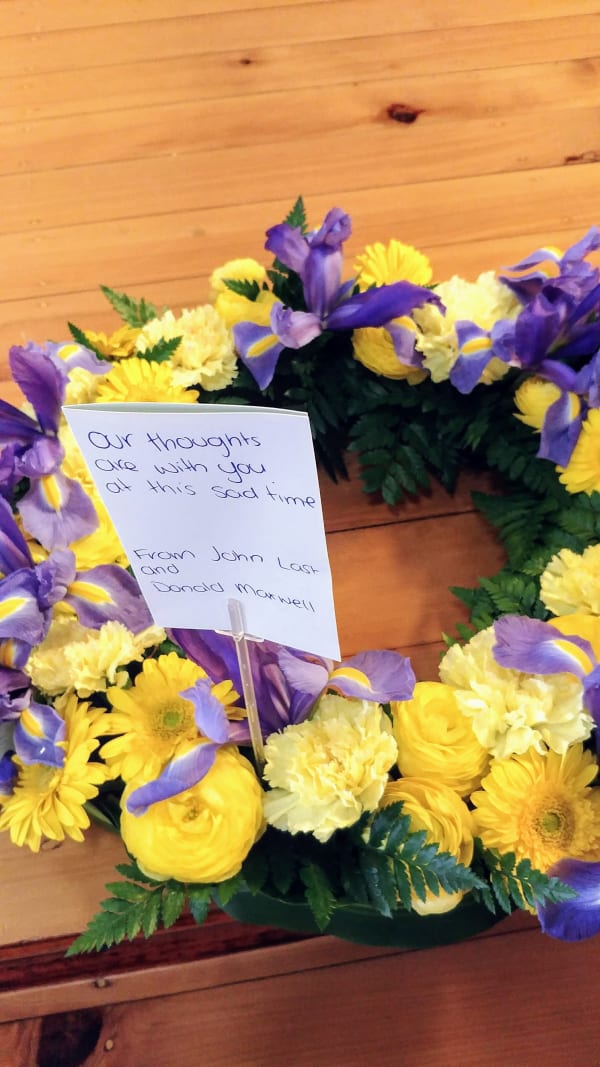 Our thoughts
are with you
at this sad time
From John Last
and
Donald Maxwell